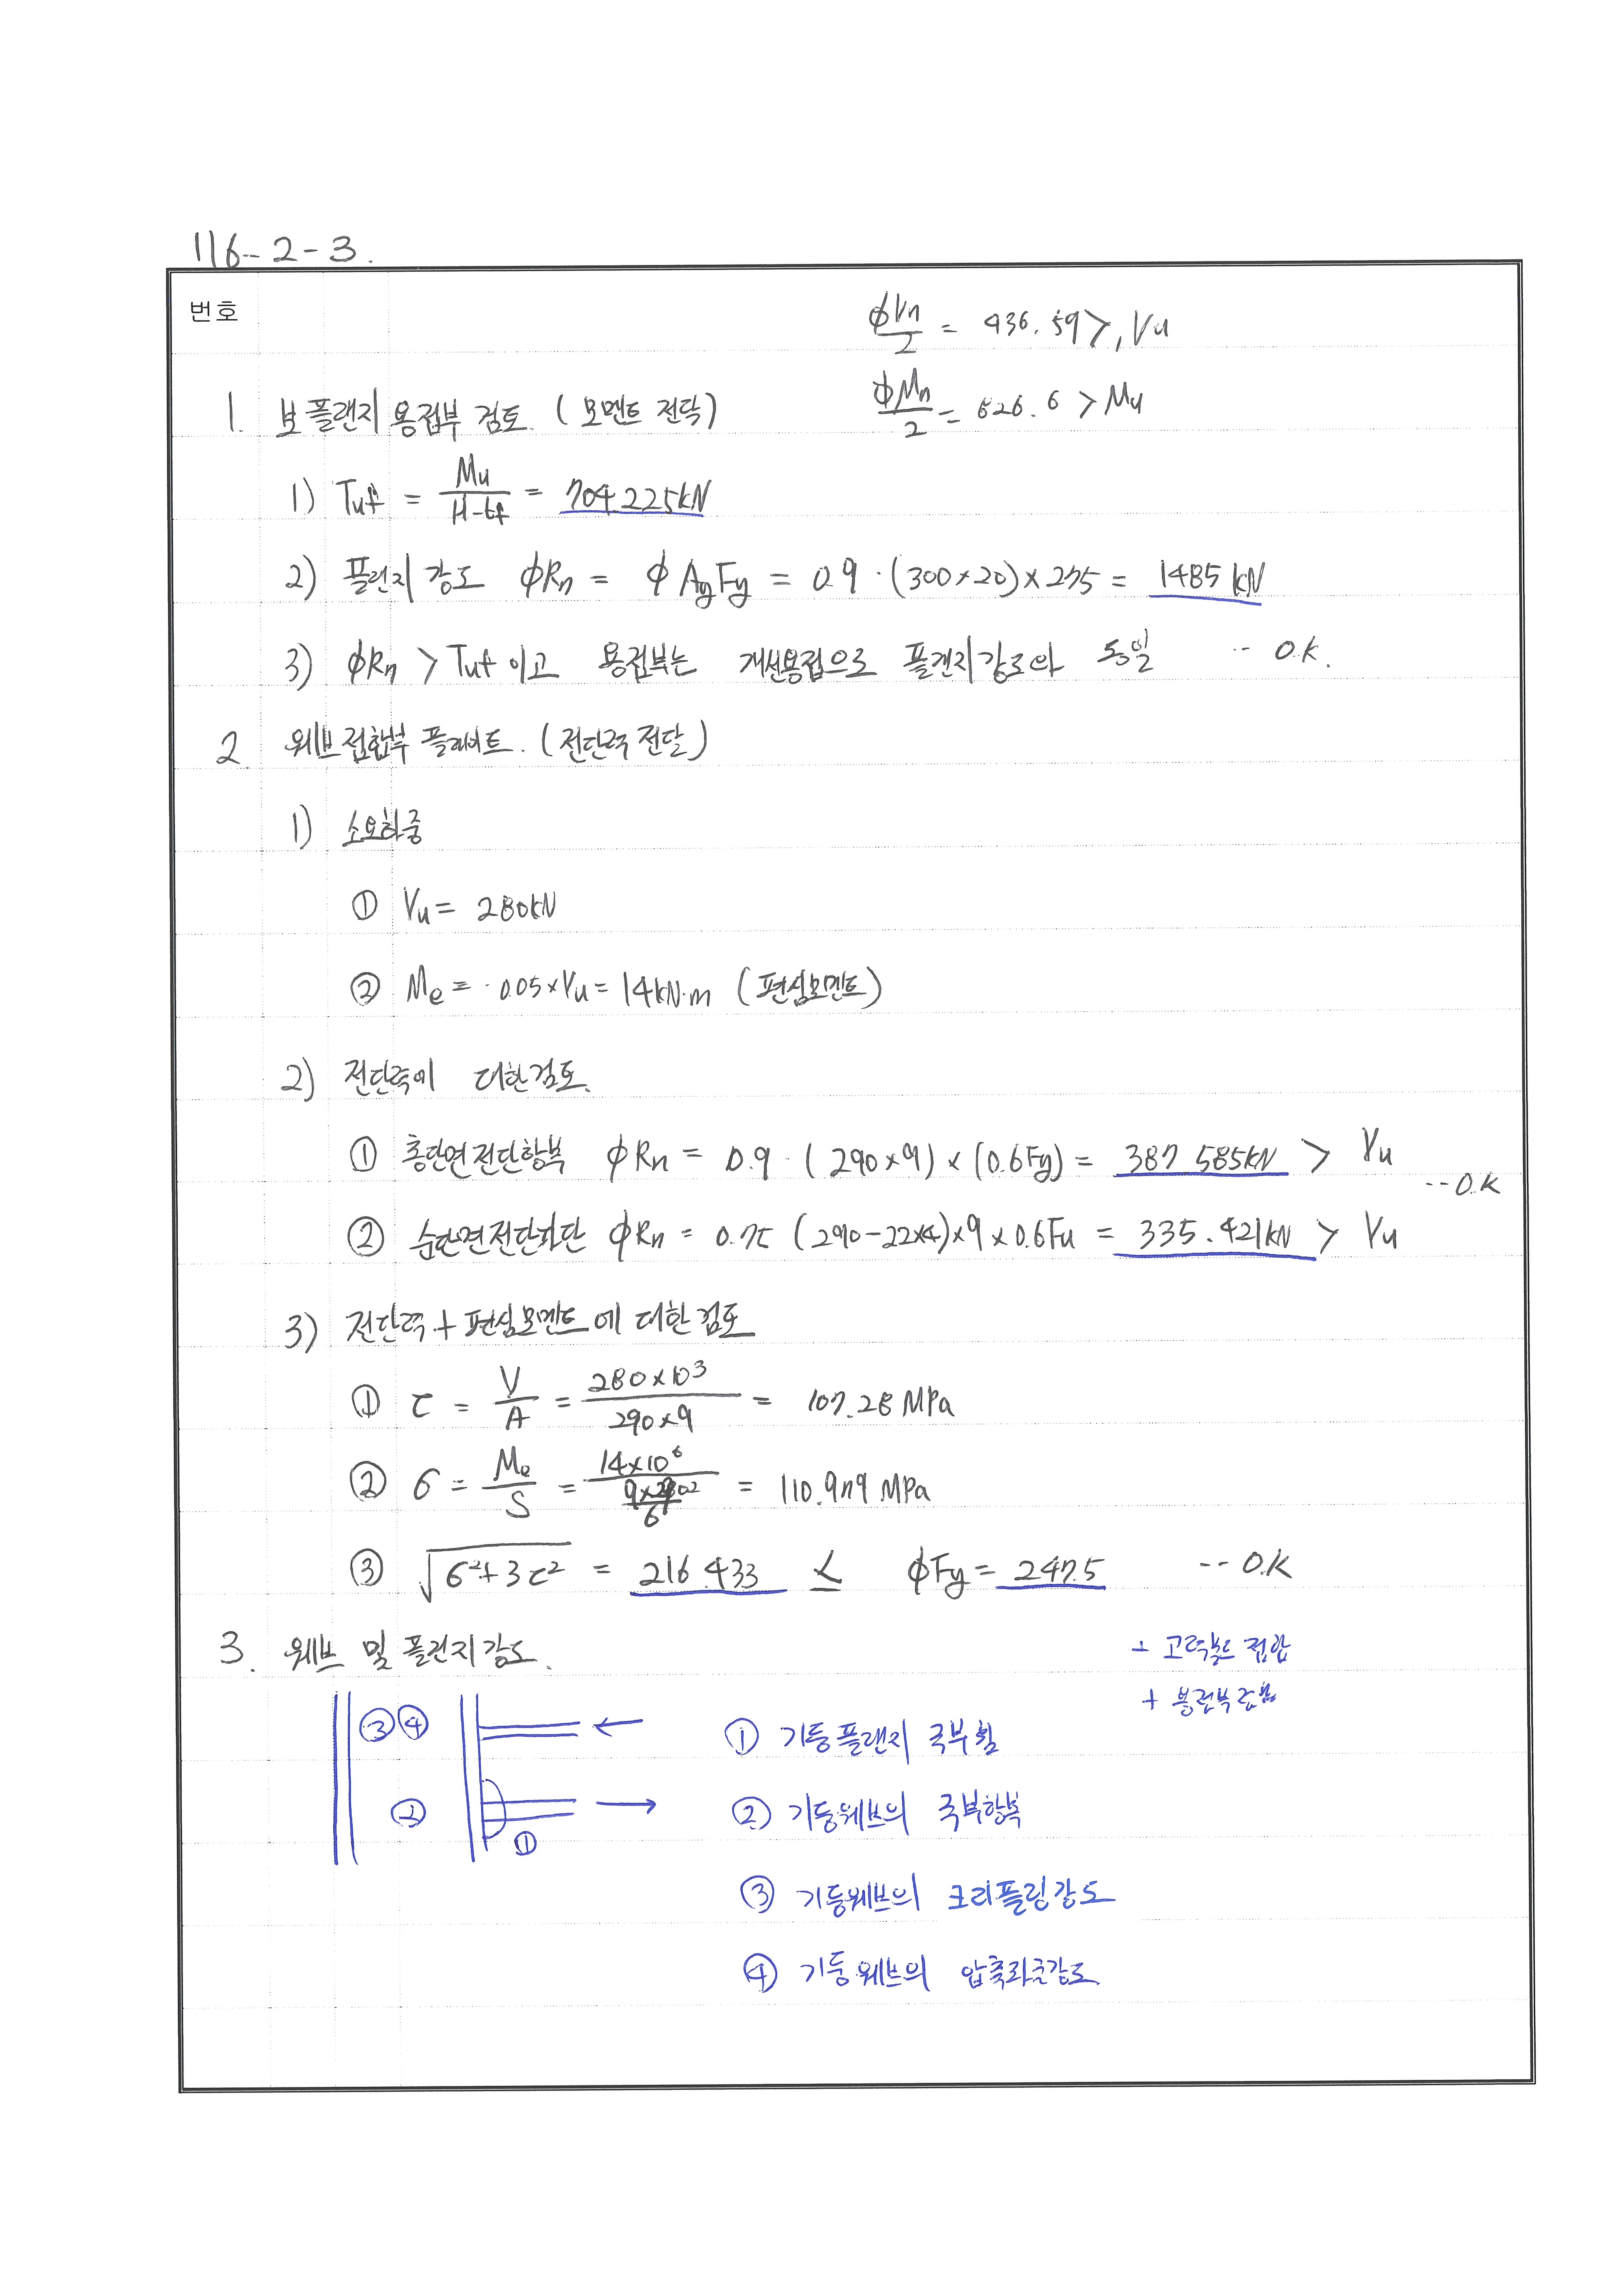 116-2-3.
번호
ϕVn/2 = 436.59 >, Vu
1. 보 플랜지 용접부 검토. (모멘트 전달)
ϕMn/2 = 626.6 > Mu
1) Tuf = Mu/H-tf = 704.225kN
2) 플랜지 강도 ϕRn = ϕ AgFy = 0.9 · (300×20)×275 = 1485 kN
3) ϕRn > Tuf 이고 용접부는 개선용접으로 플랜지강도와 동일 -- O.K.
2. 웨브접합부 플레이트. (전단력 전달)
1) 소요하중
① Vu = 280kN
② Me = 0.05×Vu = 14kN·m (편심모멘트)
2) 전단력에 대한검토.
① 총단면전단항복 ϕRn = 0.9 · (290×9)×(0.6Fy) = 387.585kN > Vu
-- O.K
② 순단면전단파단 ϕRn = 0.75 (290-22×4)×9×0.6Fu = 335.421kN > Vu
3) 전단력 + 편심모멘트에 대한 검토
① τ = V/A = 280×10³/290×9 = 107.28 MPa
② σ = Me/S = 14×10⁶/(9×290²/6) = 110.979 MPa
③ √σ²+3τ² = 216.433 < ϕFy = 247.5 -- O.K
3. 웨브 및 플랜지강도.
+ 고력볼트 접합
+ 블럭부
③④
① 기둥플랜지 국부휨
② ② 기둥웨브의 국부항복
①
③ 기둥웨브의 크리플링강도
④ 기둥웨브의 압축좌굴강도.